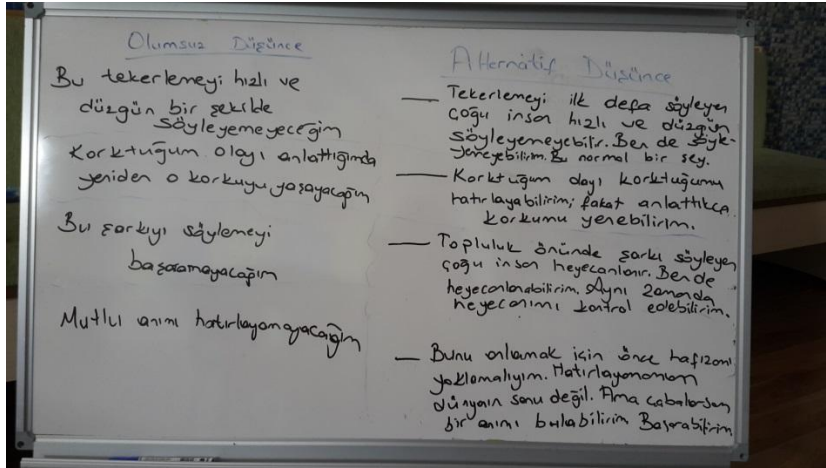 Olumsuz Düşünce
Bu tekerlemeyi hızlı ve
düzgün bir şekilde
söyleyemeyeceğim
Korktuğum olayı anlattığımda
yeniden o korkuyu yaşayacağım
Bu şarkıyı söylemeyi
başaramayacağım
Mutlu anımı hatırlayamayacağım
Alternatif Düşünce
— Tekerlemeyi ilk defa söyleyen
çoğu insan hızlı ve düzgün
söyleyemeyebilir. Ben de söyle-
yemeyebilirim. Bu normal bir şey.
— Korktuğum olayı korktuğumu
hatırlayabilirim; fakat anlattıkça
korkumu yenebilirim.
— Topluluk önünde şarkı söyleyen
çoğu insan heyecanlanır. Ben de
heyecanlanabilirim. Aynı zamanda
heyecanımı kontrol edebilirim.
— Bunu anlamak için önce hafızamı
yoklamalıyım. Hatırlayamamam
dünyanın sonu değil. Ama çabalarsam
bir anımı bulabilirim Başarabilirim